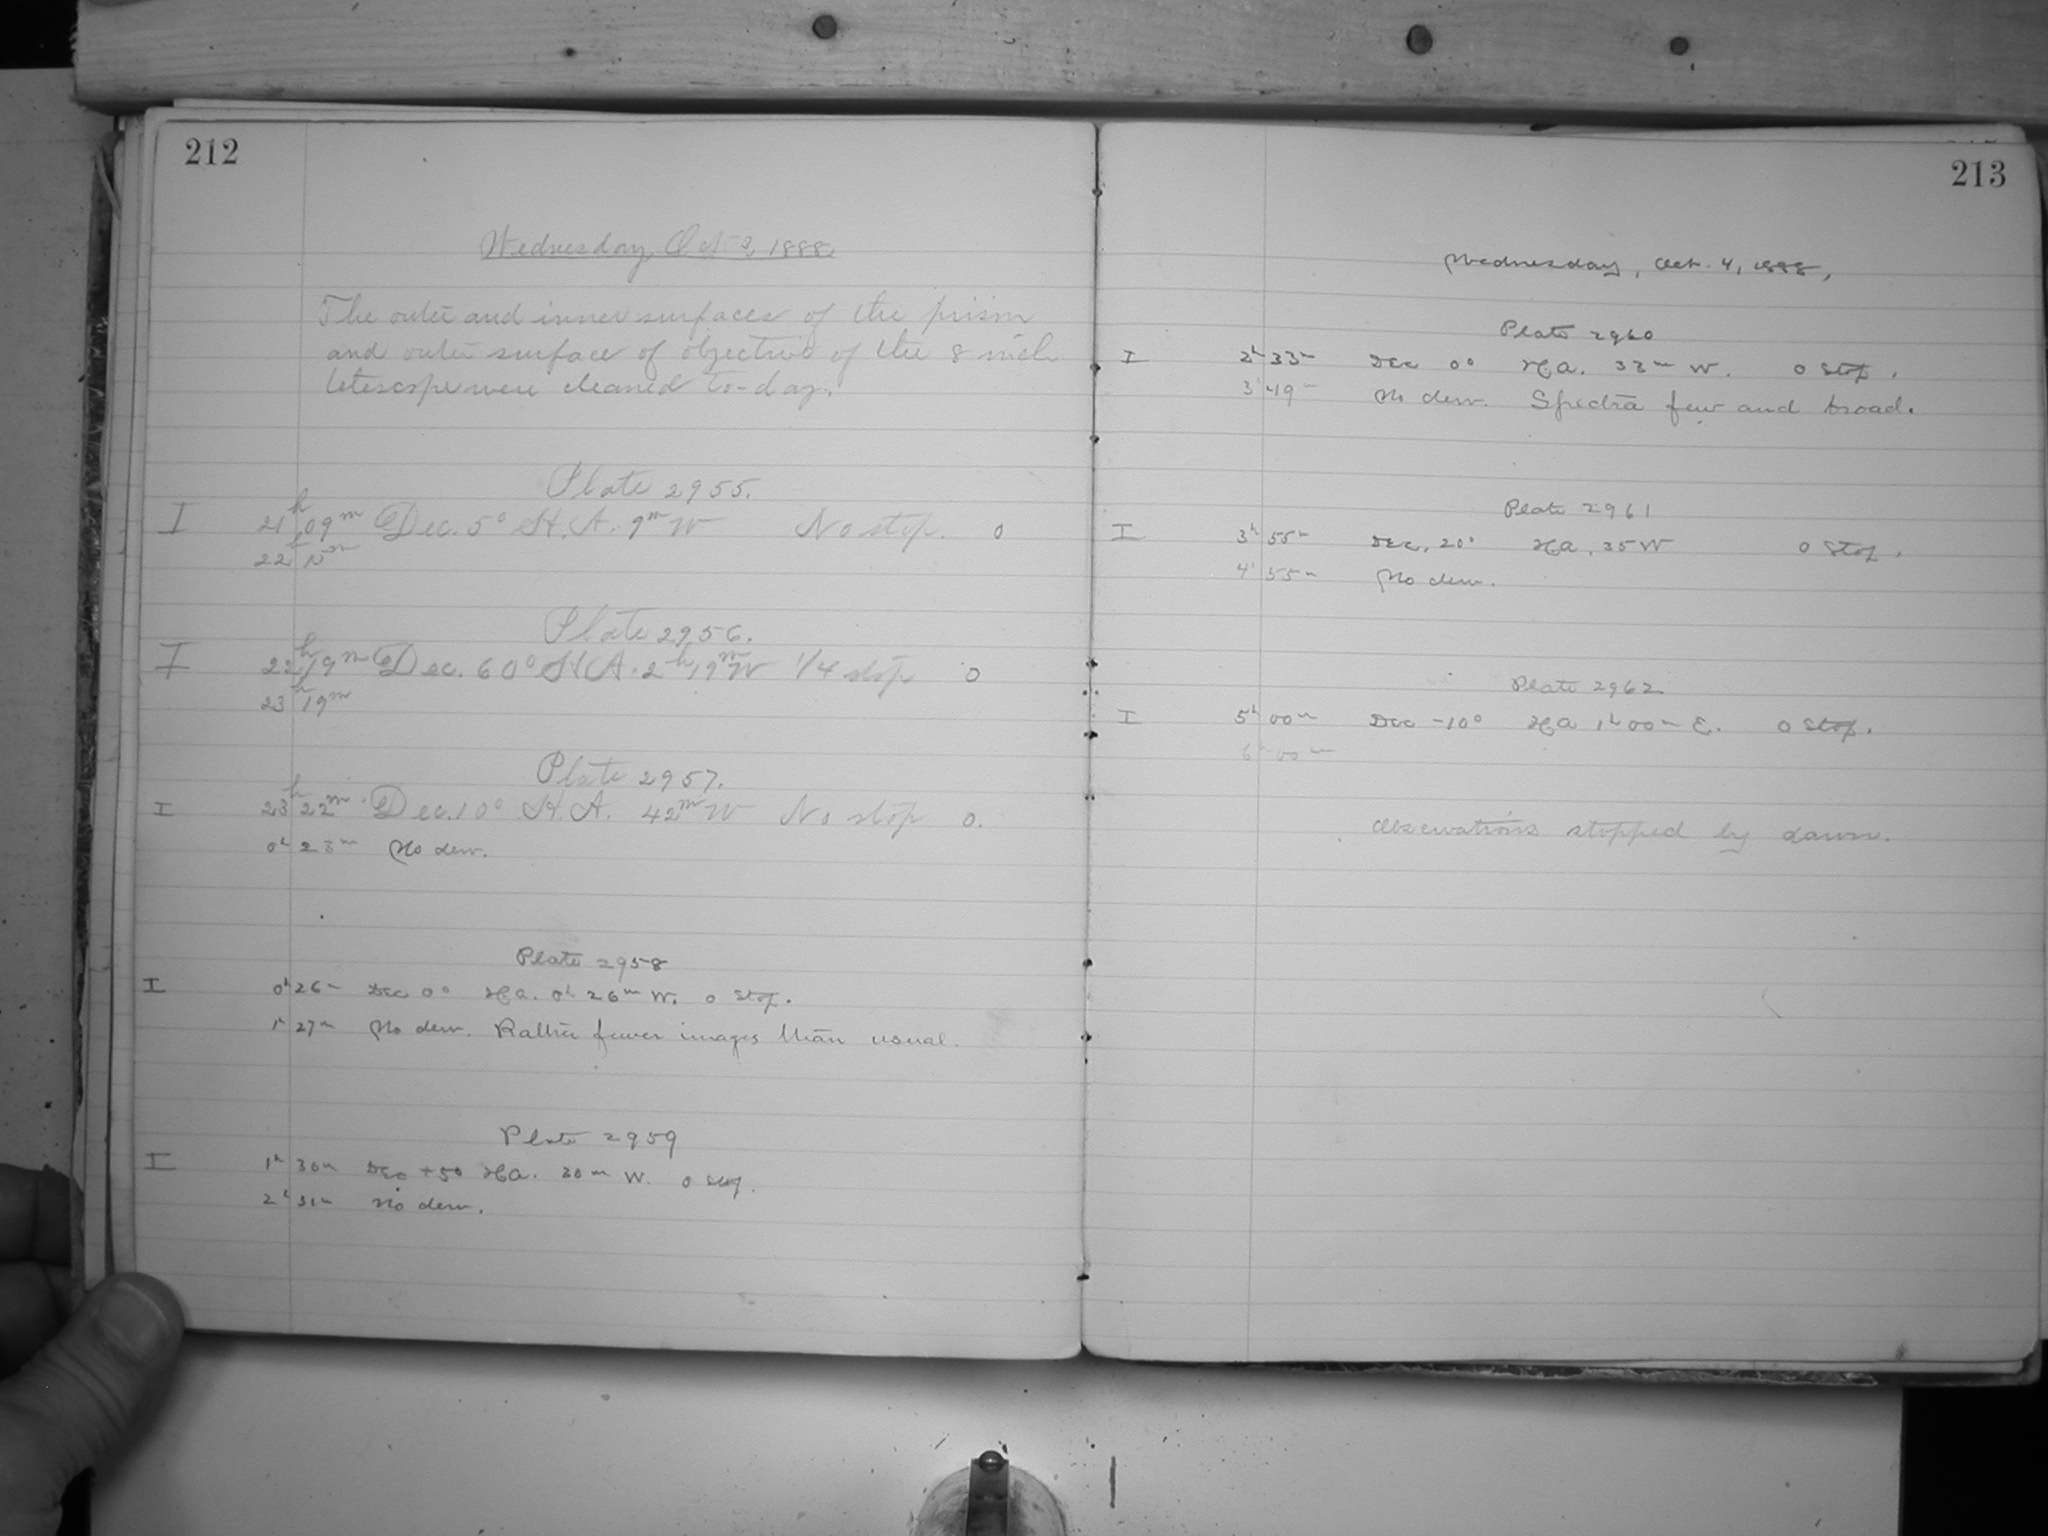 212
Wednesday, Oct 3, 1888.
The outer and inner surfaces of the prism
and outer surface of objective of the 8 inch
telescope were cleaned to-day.
Plate 2955.
I 21h 09m Dec. 5° H.A. 9m W No stop. 0
22h
Plate 2956.
I 22h 19m Dec. 60° H.A. 2h 19m W 1/4 stop 0
23h 19m
Plate 2957.
I 23h 22m Dec. 10° H.A. 42m W No stop 0.
0h 23m No dew.
Plate 2958
I 0h 26m Dec 0° H.A. 0h 26m W. 0 Stop.
1h 27m No dew. Rather fewer images than usual.
Plate 2959
I 1h 30m Dec +5° H.A. 30m W. 0 stop.
2h 31m No dew.
213
Wednesday, Oct. 4, 1888,
Plate 2960
I 2h 33m Dec 0° H.A. 33m W. 0 Stop.
3h 49m No dew. Spectra few and broad.
Plate 2961
I 3h 55m Dec. 20° H.A. 35 W 0 Stop.
4h 55m No dew.
Plate 2962
I 5h 00m Dec -10° H.A 1h 00m E. 0 Stop.
6h 00m
Observations stopped by dawn.